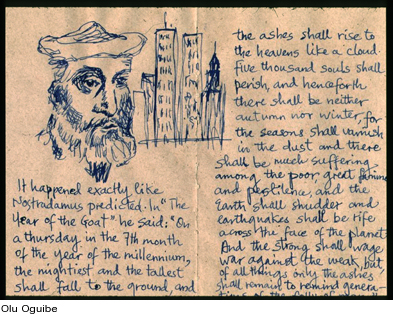 It happened exactly like
Nostradamus predicted. In "The
Year of the Goat" he said: "On
a thursday in the 7th month
of the year of the millennium,
the mightiest and the tallest
shall fall to the ground, and
the ashes shall rise to
the heavens like a cloud.
Five thousand souls shall
perish, and henceforth
there shall be neither
autumn nor winter, for
the seasons shall vanish
in the dust and there
shall be much suffering
among the poor, great famine
and pestilence, and the
Earth shall shudder and
earthquakes shall be rife
across the face of the planet
And the strong shall wage
war against the weak, but
of all things only the ashes
shall remain to remind genera-
tions of the folly of
Olu Oguibe